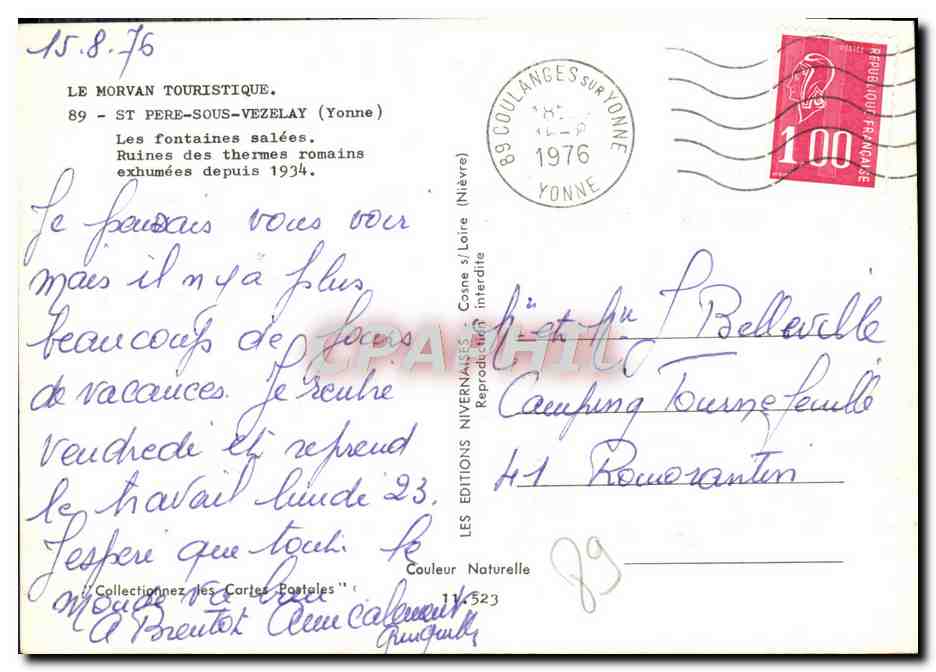 15.8.76
LE MORVAN TOURISTIQUE.
89 - ST PERE-SOUS-VEZELAY (Yonne)
Les fontaines salées.
Ruines des thermes romains
exhumées depuis 1934.
Je pensais vous voir
mais il n'y a plus
beaucoup de jours
de vacances. Je rentre
vendredi et reprend
le travail lundi 23.
J'espère que tout le
monde va bien
A Bientot Amicalement
"Collectionnez les Cartes Postales"
LES EDITIONS NIVERNAISES - Cosne s/Loire (Nièvre)
Reproduction interdite
Couleur Naturelle
11.523
89 COULANGES SUR YONNE
1976
YONNE
REPUBLIQUE FRANÇAISE
1.00
Mr et Mme J Belleville
Camping Tournefeuille
41 Romorantin
89
CPAPHIL